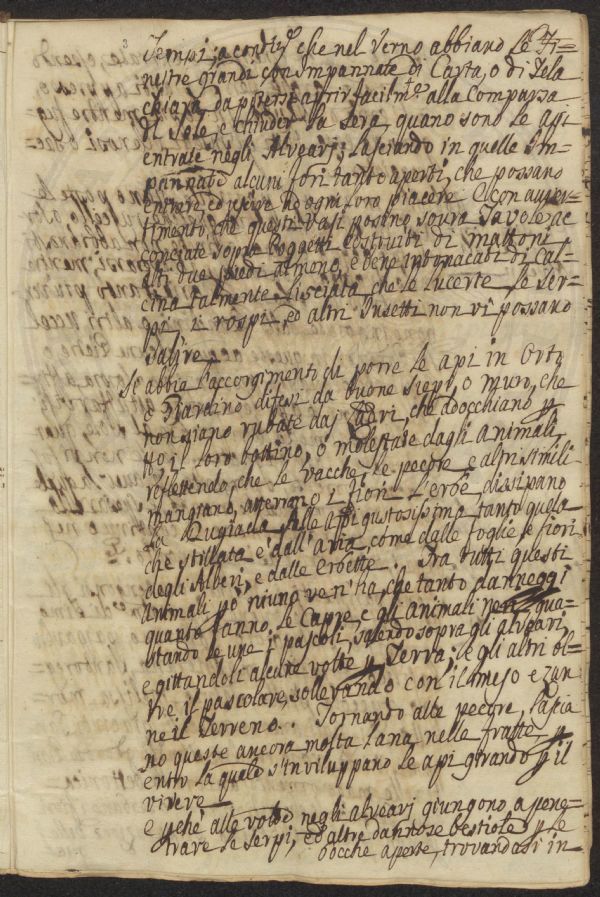 3
Tempi, a condiz.e che nel Verno abbiano le Fi=
nestre grandi con Impannate di Carta, o di Tela
chiara da potersi aprir facilm.te alla Comparsa
il Sole, e chiuder la sera, quano sono le api
entrate negli Alvearj; lasciando in quelle Im=
pannate alcuni fori tanto aperti, che possano
entrare, ed uscire ad ogni loro piacere. E con auver=
timento, che questi Vasi posino soura Tavole ac
conciate sopra Poggetti costruiti di mattoni
alti due piedi almeno, e bene intonacati di Cal=
cina talmente lisciata, che le lucerte, le Ser=
pi, i rospi, ed altri Insetti non vi possano
Salire.
Si abbia l'accorgimento di porre le api in Orto
o Giardino difesi da buone siepi, o muro, che
non siano rubate dai Ladri, che adocchiano p
tto il loro bottino, o molestate dagli animali,
riflettendo, che le vacche, le pecore, e altri simili
mangiano, atterrano i fiori. L'erbe, dissipano
la Rugiada alle Api gustosissima tanto quela
che stillata è dall'aria, come dalle foglie, e fiori
degli Alberi, e dalle erbette. Tra tutti questi
Animali pò niuno ve n'ha, che tanto danneggi
quanto fanno le Capre, e gli animali gua=
stando le une i pascoli, salendo sopra gli alveari,
e gittandoli alcune volte p Terra; e gli altri ol=
tre il pascolare, sollevando con il muso e zan
ne il Terreno. Tornando alle pecore, lascia
no queste ancora molta lana nelle fratte, p
entro la quale s'inviluppano le api girando p il
vivere
e pchè alle volte negli alvearj giungono a pene=
trare le Serpi, ed altre dannose bestiole p le
bocche aperte, trovandosi in=